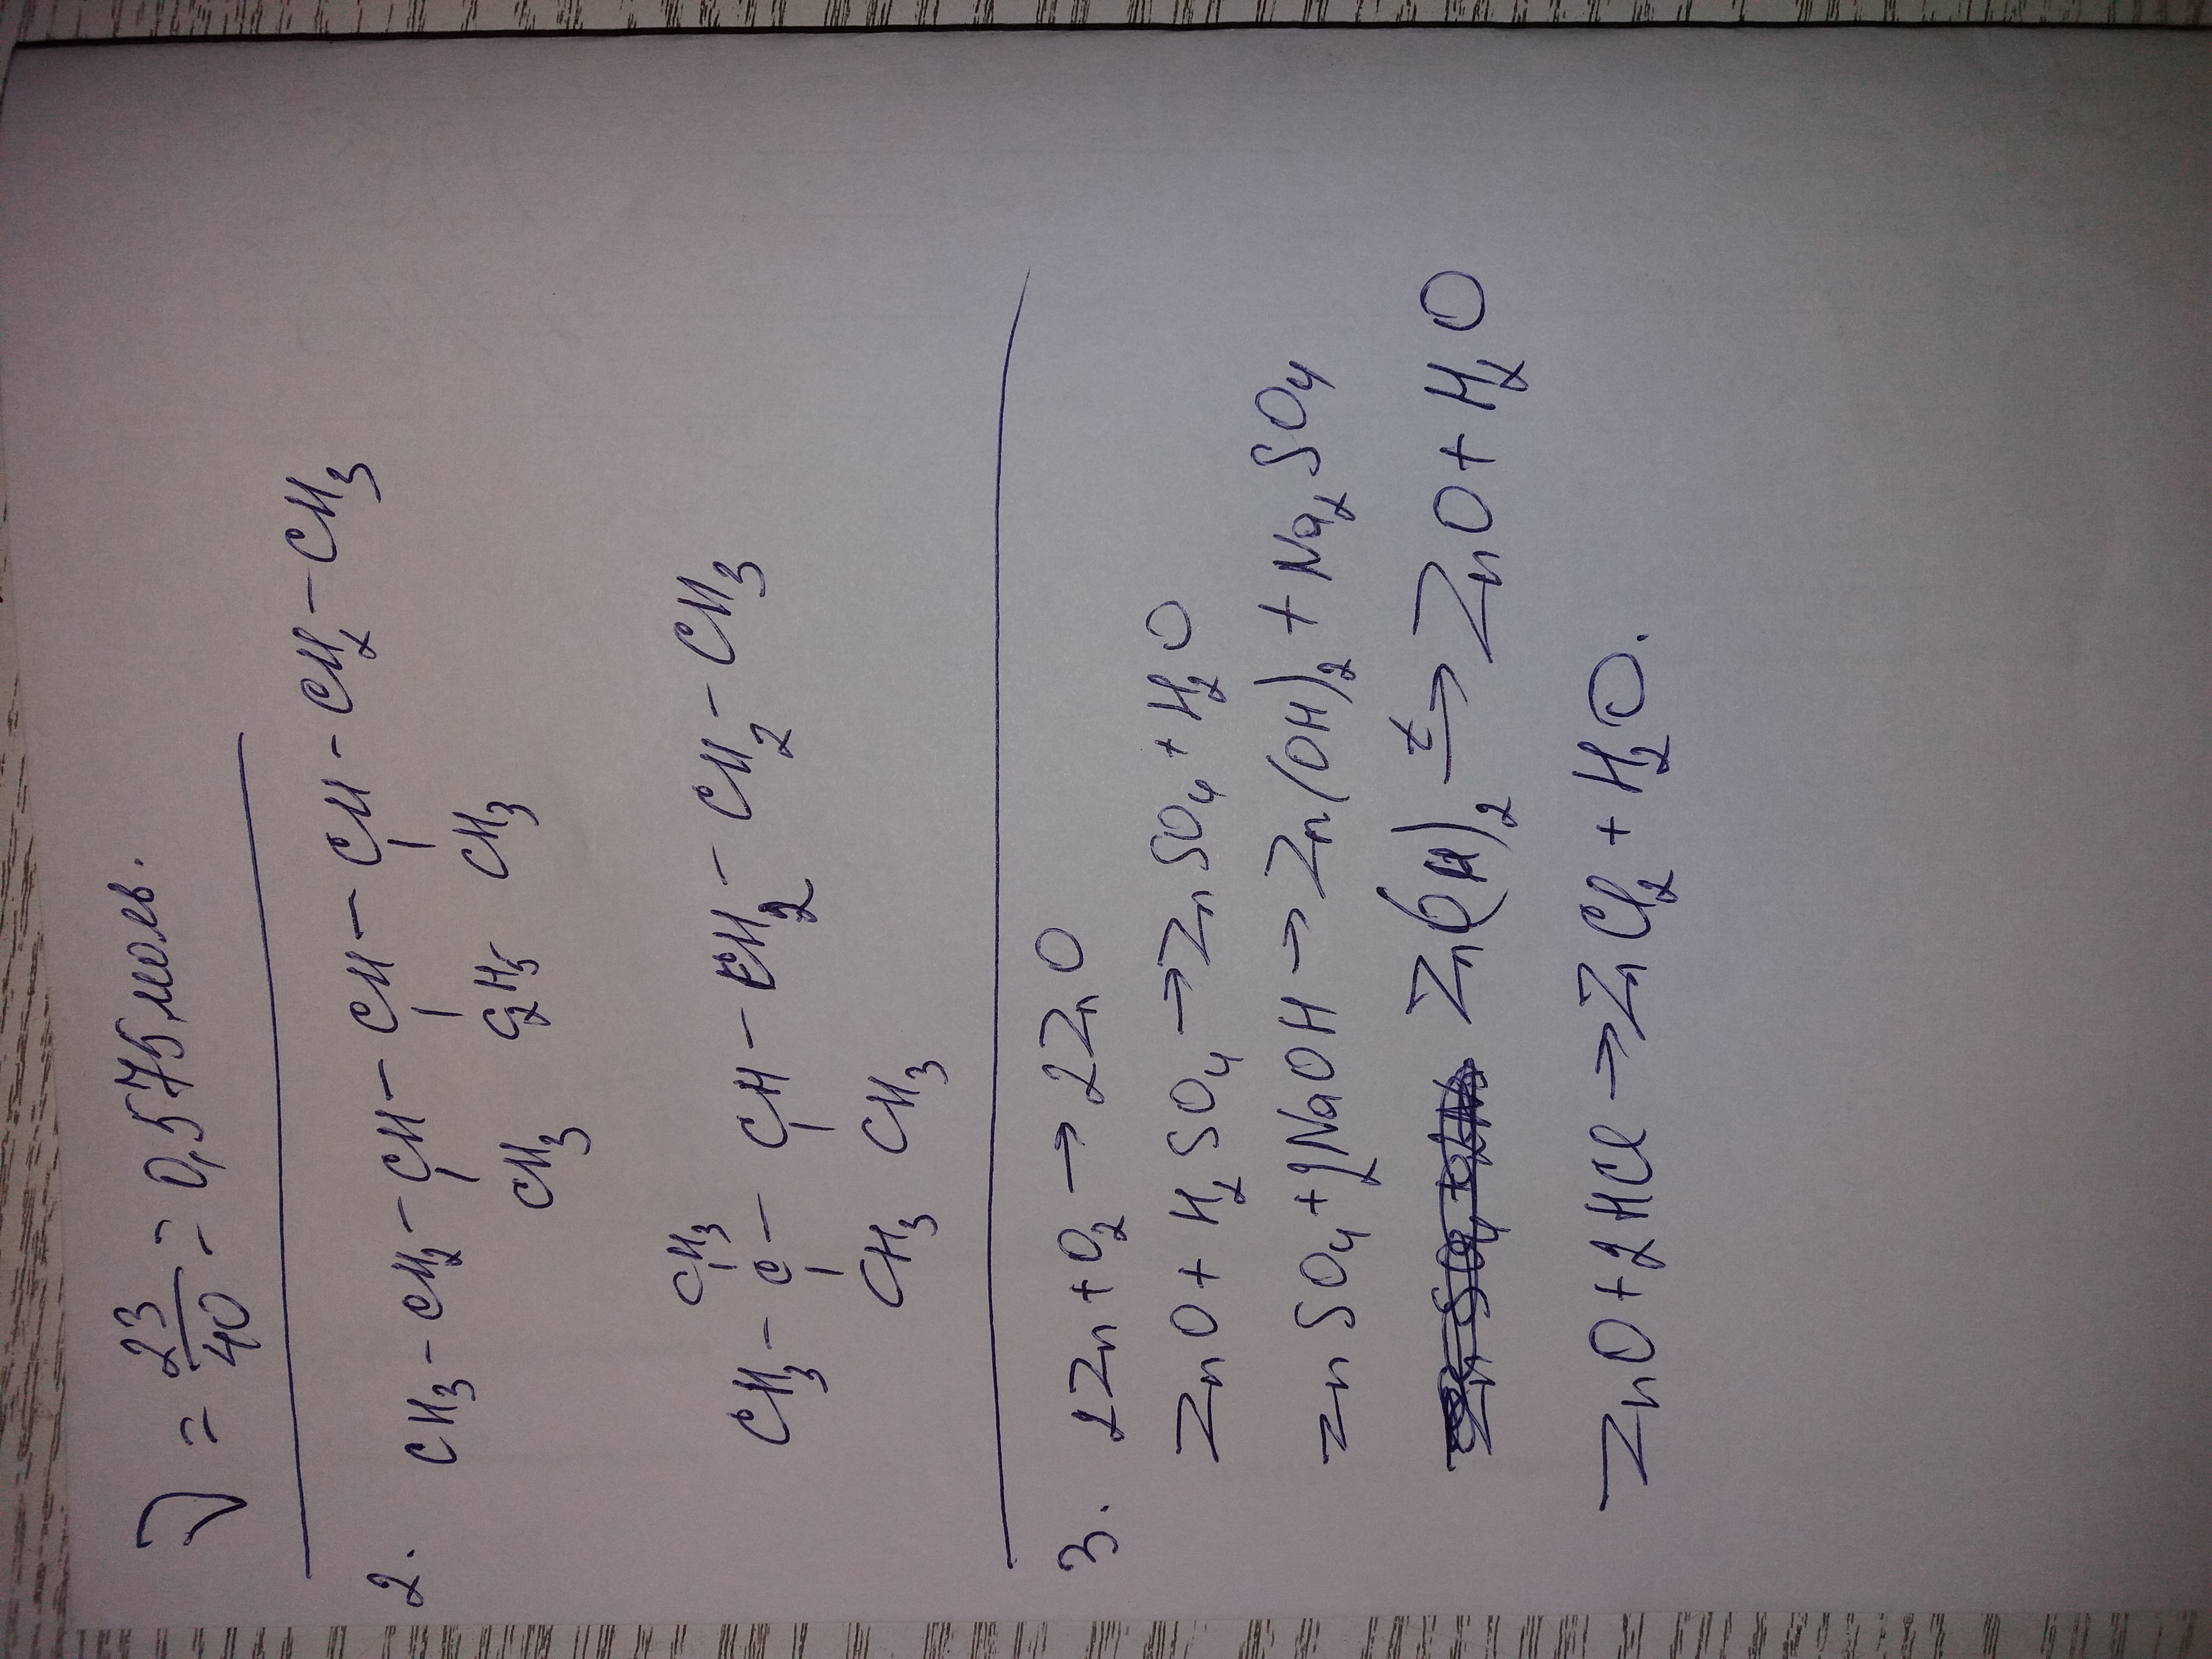 ) = 23/40 = 0,575 моль.
2. CH3 – CH2 – CH – CH – CH – CH2 – CH3
CH3 C2H5 CH3
CH3
CH3 – C – CH – CH2 – CH2 – CH3
CH3 CH3
3. 2Zn + O2 → 2ZnO
ZnO + H2SO4 → ZnSO4 + H2O
ZnSO4 + 2NaOH → Zn(OH)2 + Na2SO4
Zn(OH)2 t→ ZnO + H2O
ZnO + 2HCl → ZnCl2 + H2O.